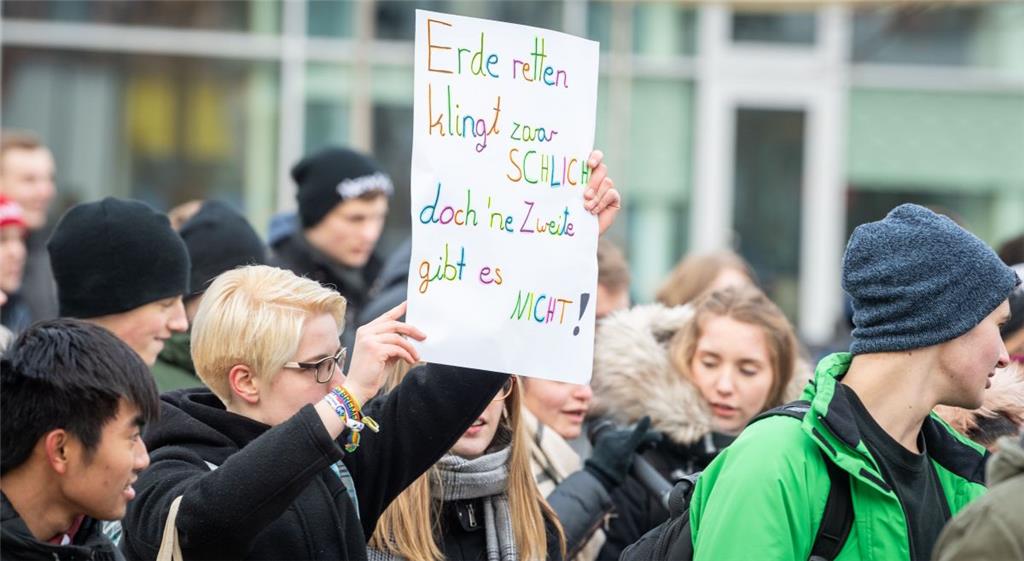 Erde retten
klingt zwar
SCHLICHT
doch 'ne Zweite
gibt es
NICHT!